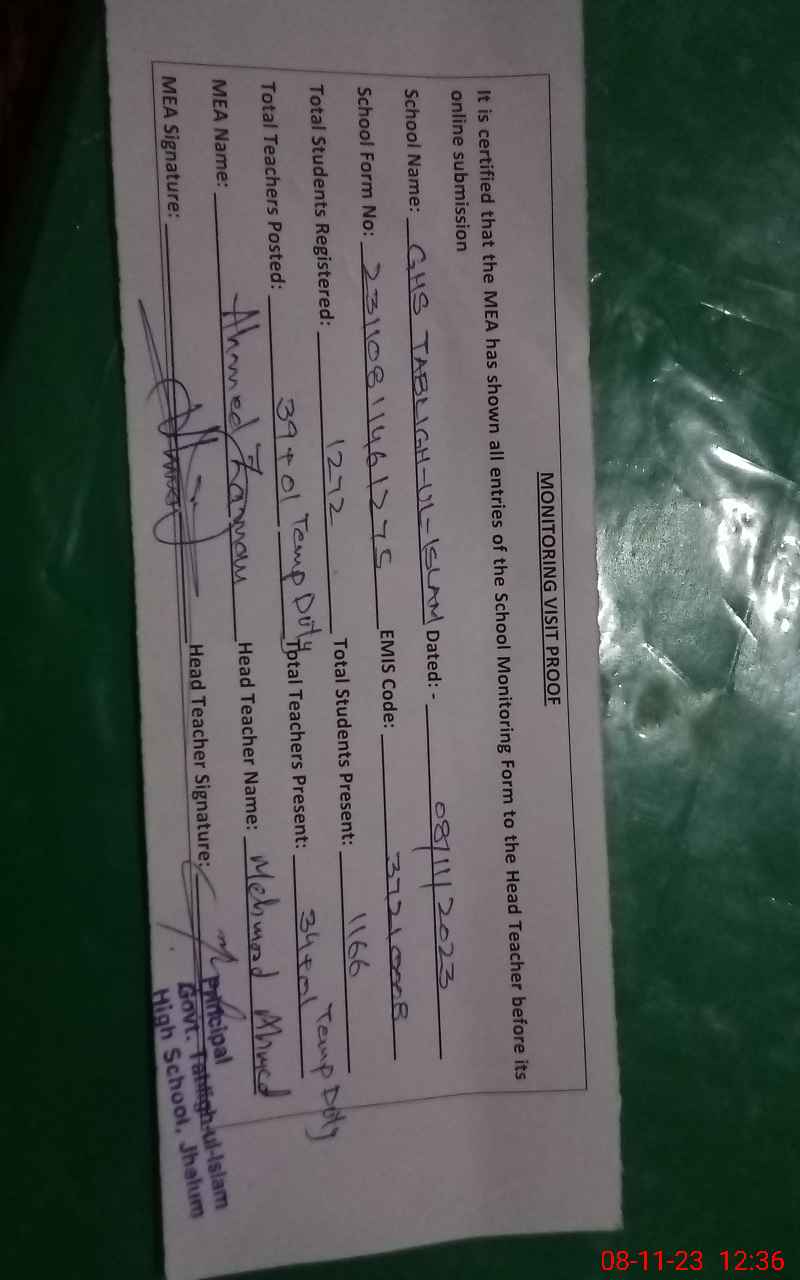 MONITORING VISIT PROOF
It is certified that the MEA has shown all entries of the School Monitoring Form to the Head Teacher before its
online submission
School Name: GHS TABLIGH-UL-ISLAM Dated: - 08/11/2023
School Form No: 23110811461275 EMIS Code: 37210008
Total Students Registered: 1272 Total Students Present: 1166
Total Teachers Posted: 39+01 Temp Duty Total Teachers Present: 34+01 Temp Duty
MEA Name: Ahmed Zaman Head Teacher Name: Mehmood Ahmed
MEA Signature: Head Teacher Signature:
Principal
Govt. Tabligh-ul-Islam
High School, Jhelum
08-11-23 12:36